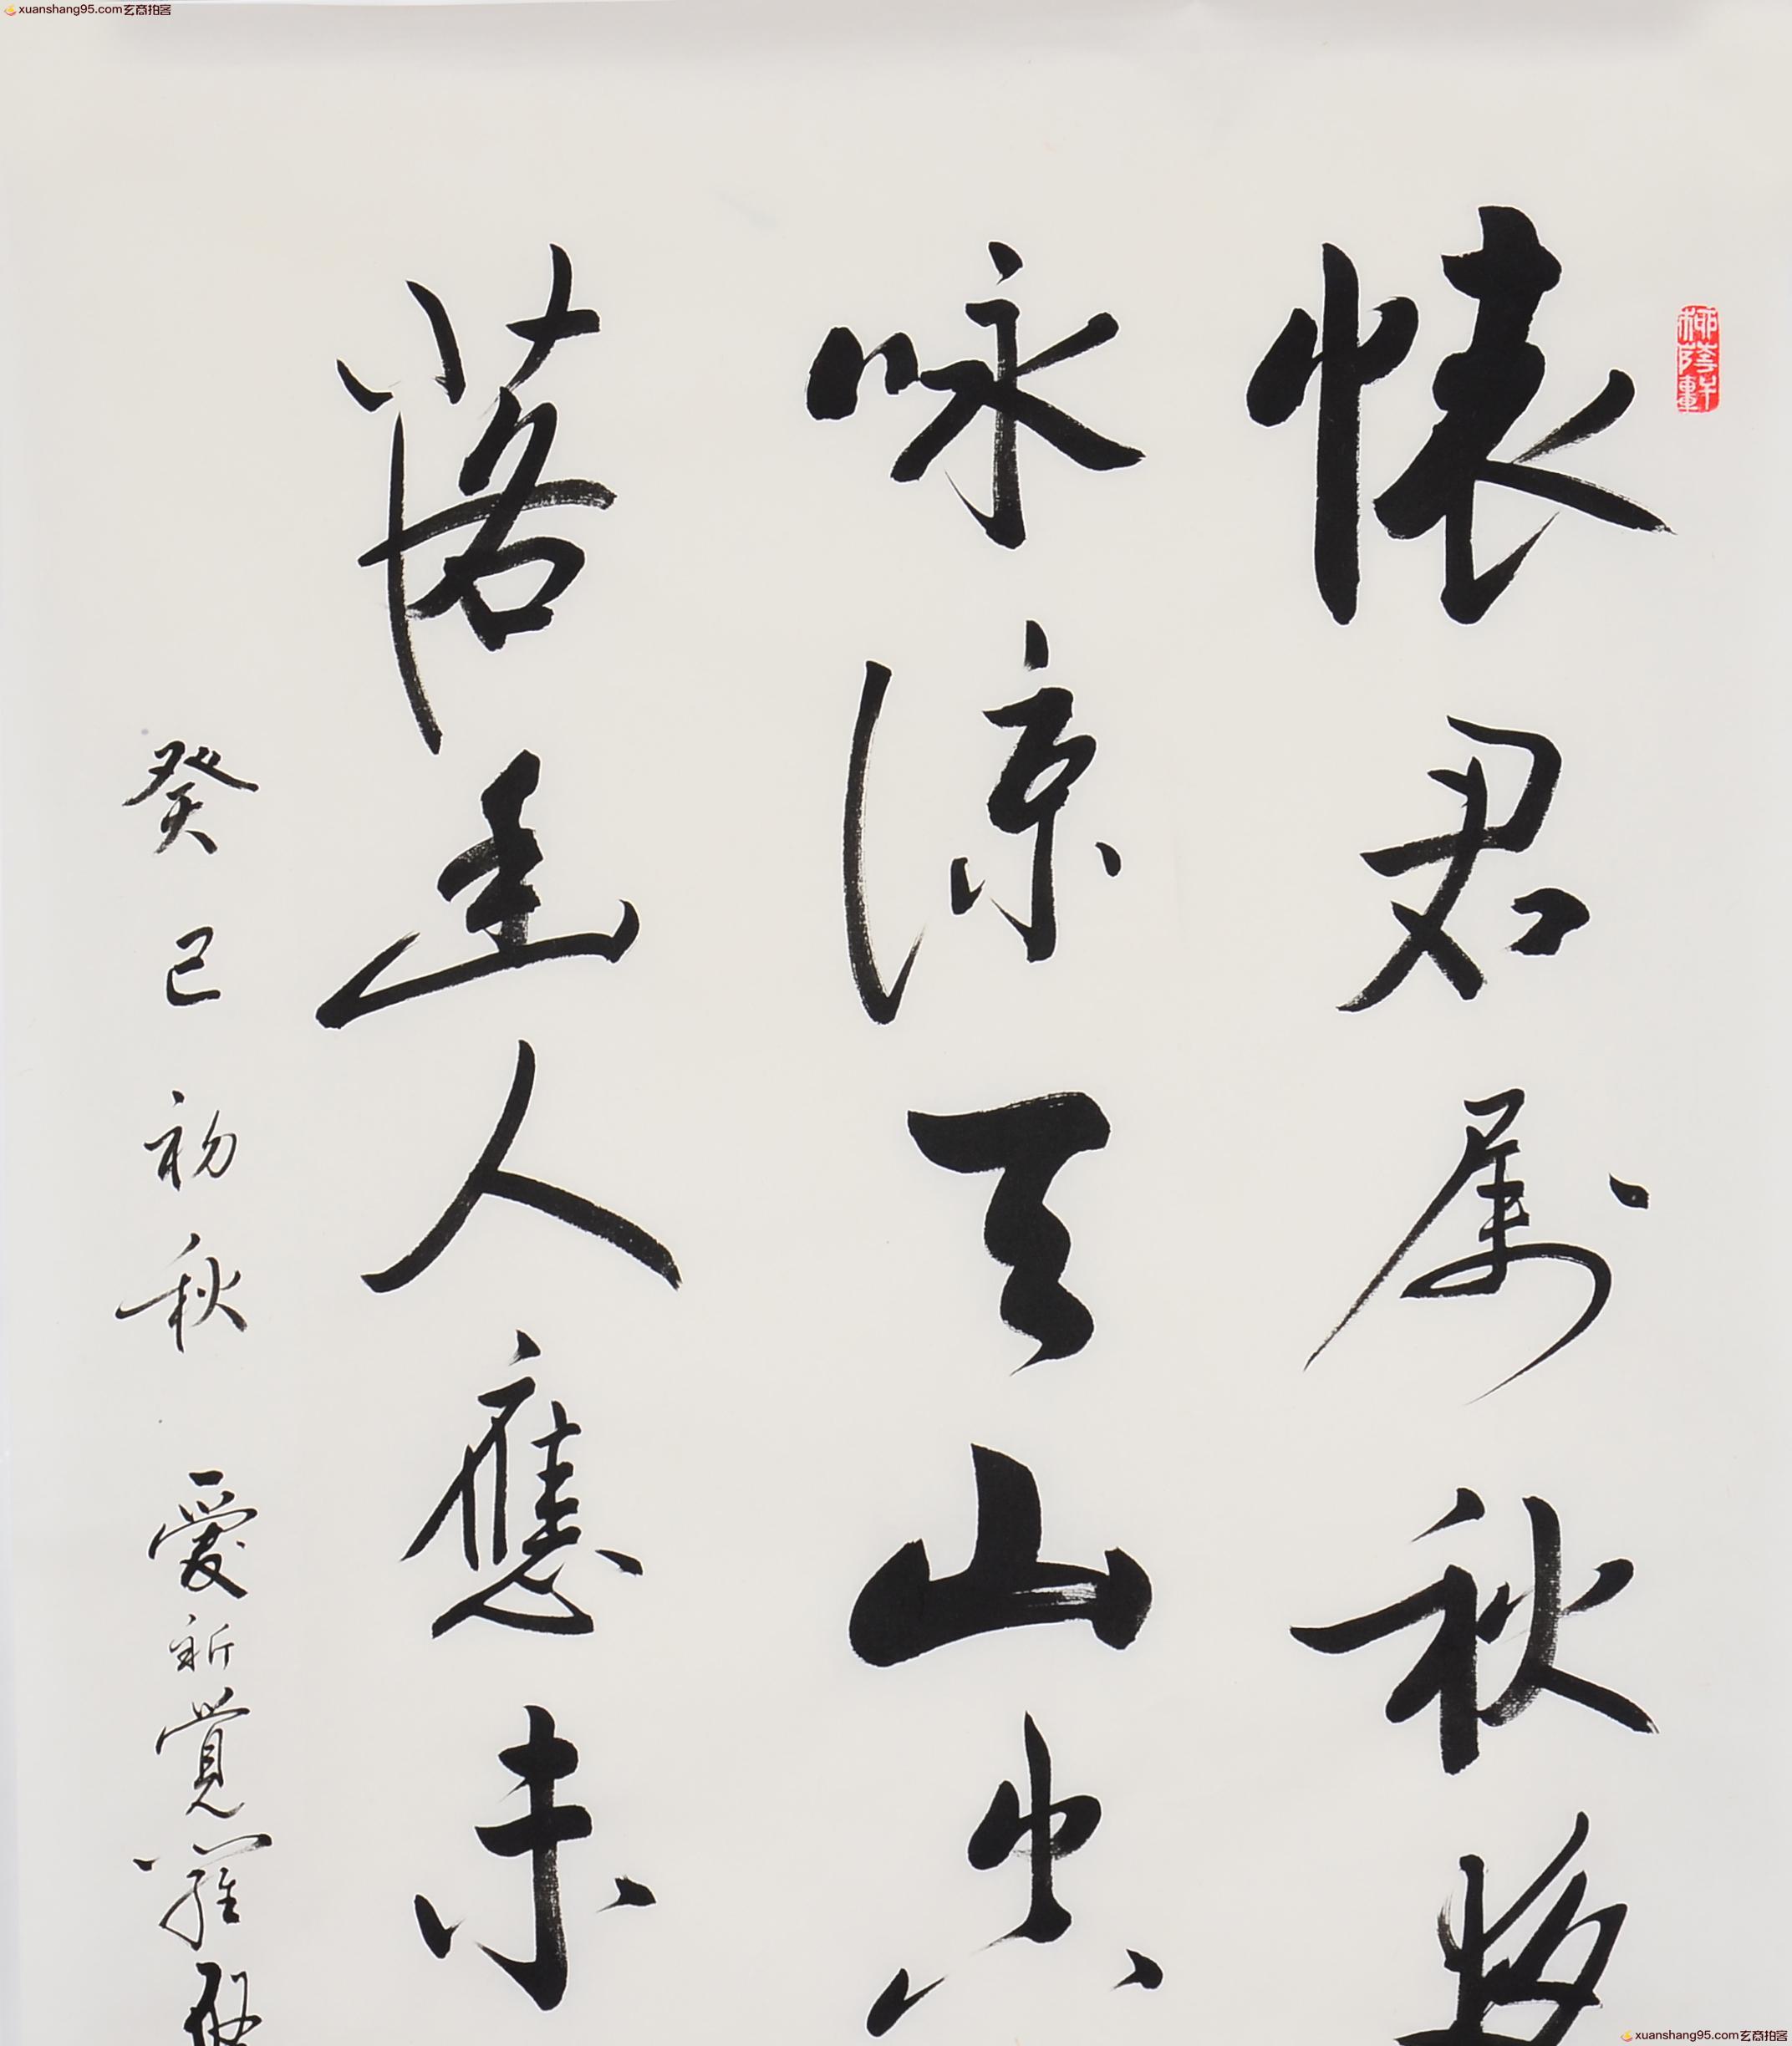 xuanshang95.com玄商拍客
柳蔭軒
懷君属秋夜
咏涼天山空
落幽人應未
癸巳初秋 愛新覺羅
xuanshang95.com玄商拍客